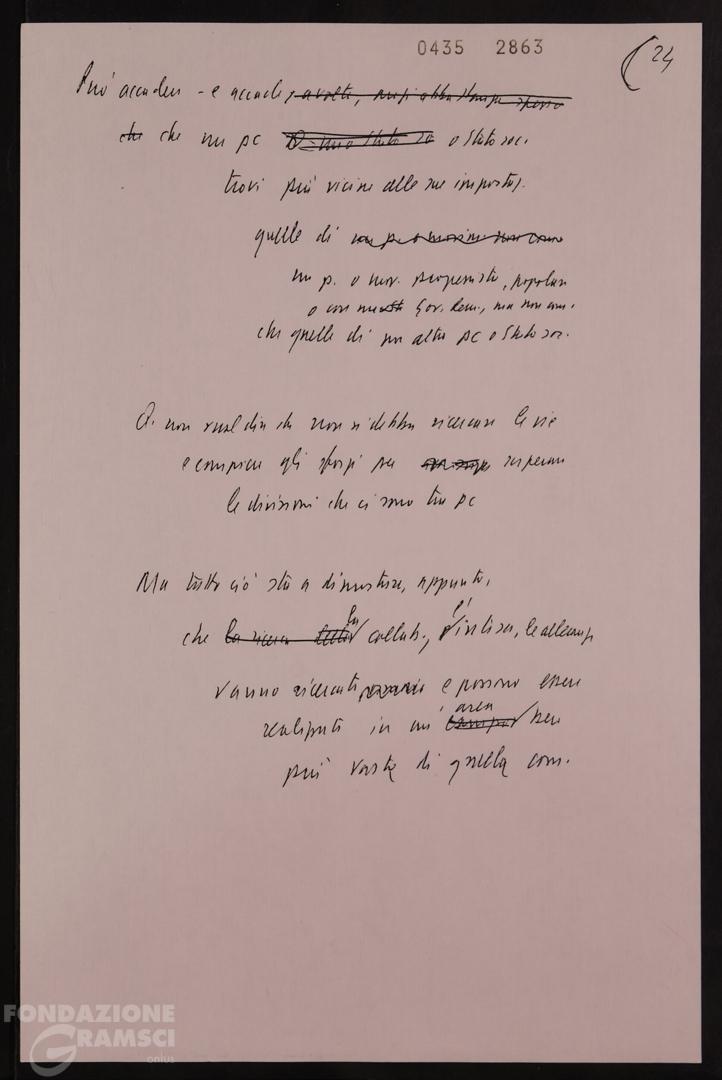 0435 2863
24
Può accadere - e accade,
che che un pc o Stato soc.
trovi più vicine alle sue impostaz.
quelle di
un p. o mov. progressista, popolare
o con Gov. dem., ma non com.
che quelle di un altro pc o Stato soc.
Q. non vuol dire che non si debba ricercare le vie
e compiere gli sforzi per superare
le divisioni che ci sono tra pc
Ma tutto ciò sta a dimostrare, appunto,
che la ricerca della la collab., l'intesa, le alleanze
vanno ricercate e possono essere
realizzate in un' campo area ben
più vasta di quella com.
FONDAZIONE
GRAMSCI
onlus